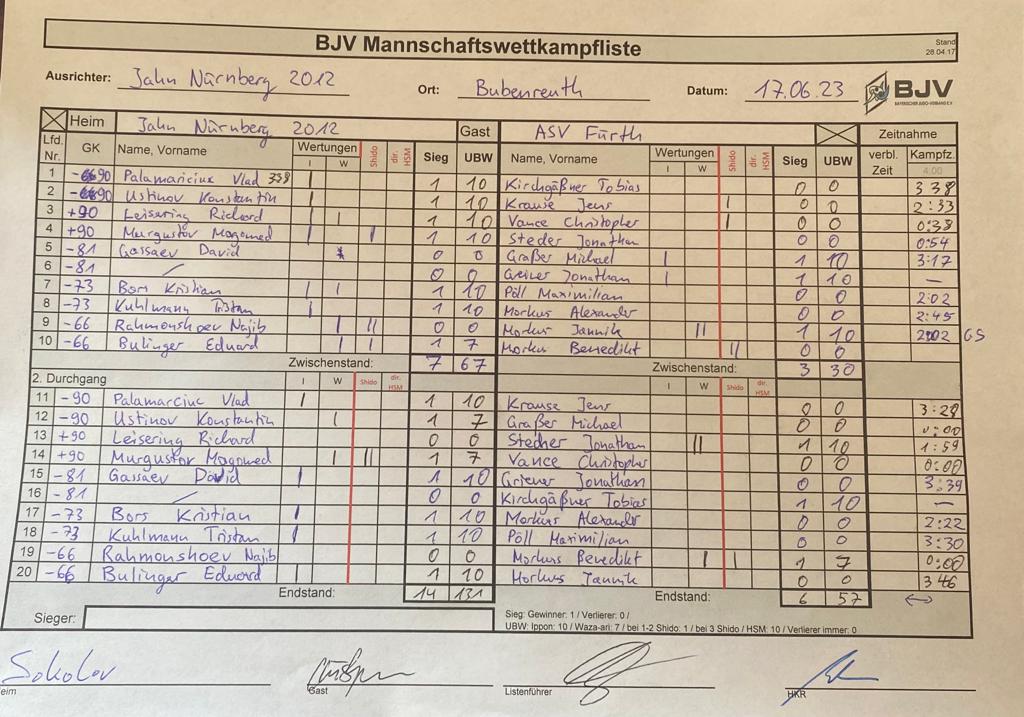 BJV Mannschaftswettkampfliste
Stand 28.04.17
Ausrichter: Jahn Nürnberg 2012 Ort: Bubenreuth Datum: 17.06.23 BJV
BAYERISCHER JUDO-VERBAND E.V.
Heim Jahn Nürnberg 2012 Gast ASV Fürth Zeitnahme
Lfd. Nr. GK Name, Vorname Wertungen I W Shido dir. HSM Sieg UBW Name, Vorname Wertungen I W Shido dir. HSM Sieg UBW verbl. Zeit Kampfz. 4:00
1 -90 Palamariciux Vlad 338 I 1 10 Kirchgäßner Tobias 0 0 338
2 -90 Ustinov Konstantin I 1 10 Krause Jens I 0 0 2:33
3 +90 Leisering Richard I I 1 10 Vance Christopher I 0 0 0:38
4 +90 Murgustov Magomed I I 1 10 Steder Jonathan 0 0 0:54
5 -81 Gassaev David 0 0 Graßer Michael I 1 10 3:17
6 -81 / 0 0 Greiner Jonathan I 1 10 —
7 -73 Bors Kristian I I 1 10 Pöll Maximilian 0 0 2:02
8 -73 Kuhlmann Tristan I 1 10 Morkus Alexander 0 0 2:45
9 -66 Rahmonshoev Najib I II 0 0 Morkus Jannik II 1 10 2:02 GS
10 -66 Bulinger Eduard I I 1 7 Morkus Benedikt II 0 0
Zwischenstand: 7 67 Zwischenstand: 3 30
2. Durchgang I W Shido dir. HSM I W Shido dir. HSM
11 -90 Palamarciuc Vlad I 1 10 Krause Jens 0 0 3:29
12 -90 Ustinov Konstantin I 1 7 Graßer Michael 0 0 0:00
13 +90 Leisering Richard 0 0 Stecher Jonathan II 1 10 1:59
14 +90 Murgustov Magomed I II 1 7 Vance Christopher 0 0 0:00
15 -81 Gassaev David I 1 10 Griener Jonathan 0 0 3:39
16 -81 / 0 0 Kirchgäßner Tobias 1 10 —
17 -73 Bors Kristian I 1 10 Morkus Alexander 0 0 2:22
18 -73 Kuhlmann Tristan I 1 10 Pöll Maximilian 0 0 3:30
19 -66 Rahmonshoev Najib 0 0 Morkus Benedikt I I 1 7 0:00
20 -66 Bulinger Eduard I 1 10 Morkus Jannik 0 0 346
Endstand: 14 131 Endstand: 6 57
Sieger:
Sieg: Gewinner: 1 / Verlierer: 0 /
UBW: Ippon: 10 / Waza-ari: 7 / bei 1-2 Shido: 1 / bei 3 Shido / HSM: 10 / Verlierer immer: 0
Sokolov
eim Gast Listenführer HKR